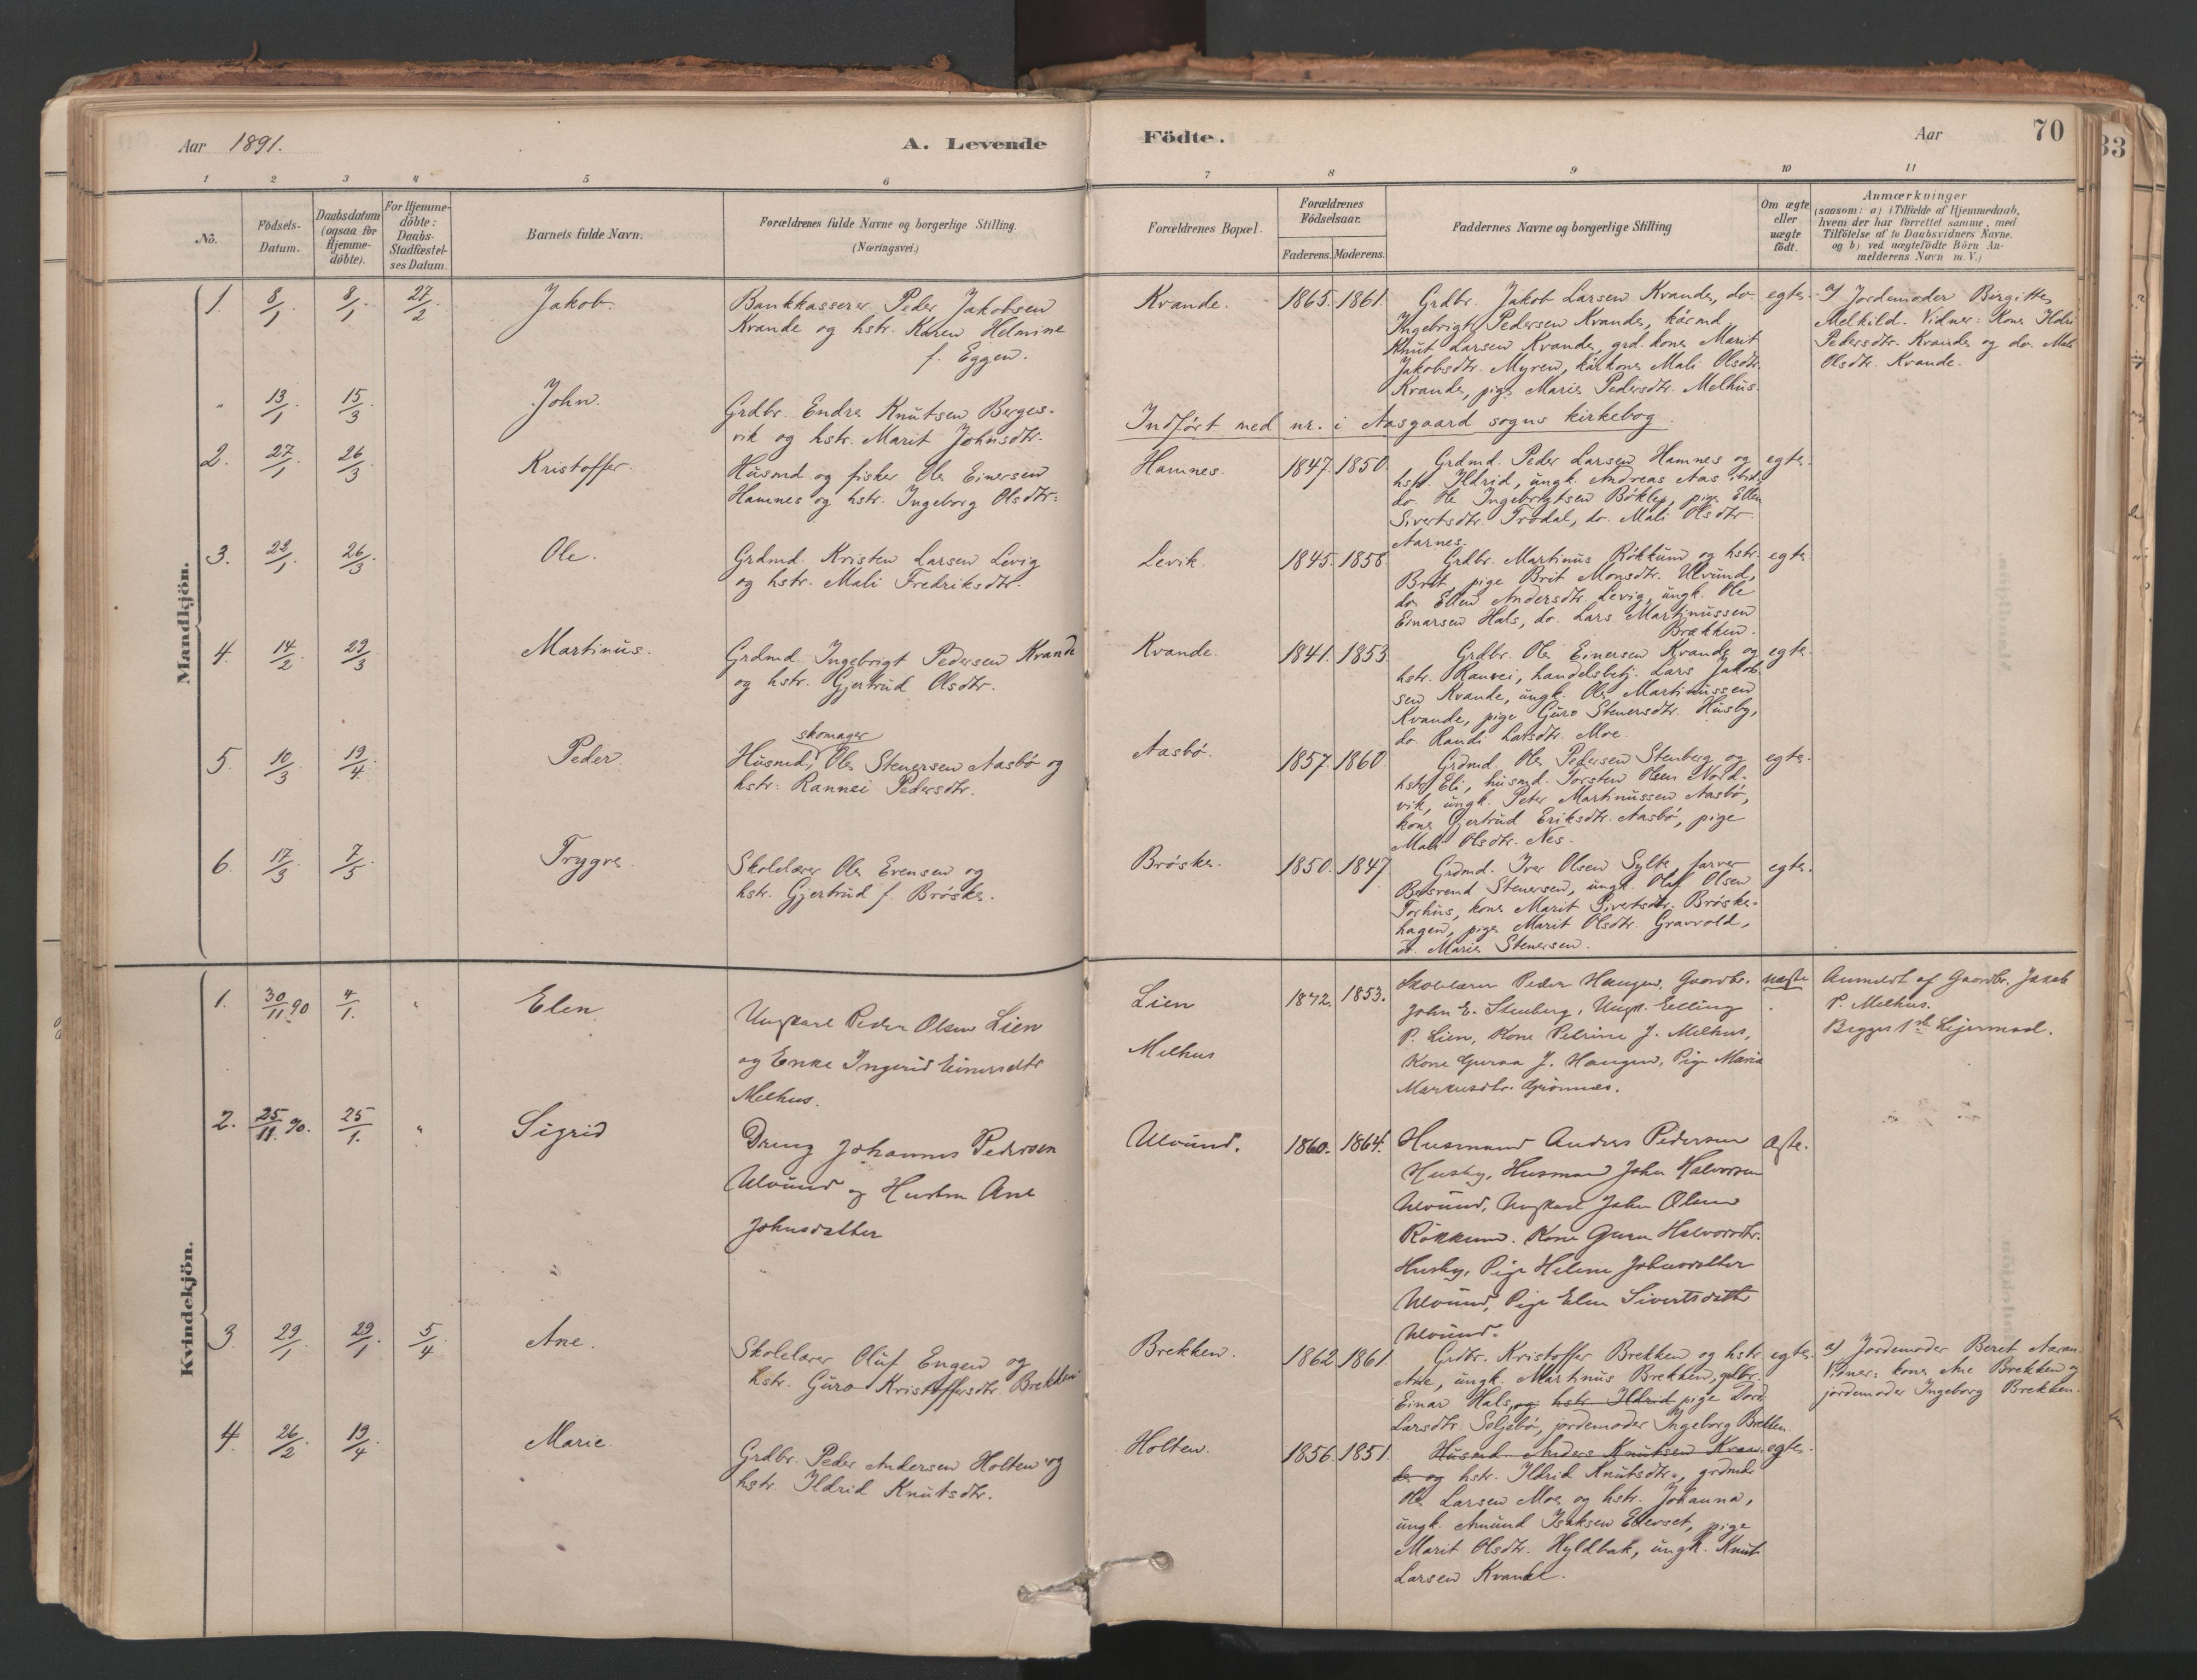 Aar 1891.
A. Levende
Födte.
Aar
70
33
1 2 3 4 5 6 7 8 9 10 11
No.
Födsels-
Datum.
Daabsdatum
(ogsaa for
Hjemme-
döbte).
For Hjemme-
döbte:
Daabs-
Stadfæstel-
ses Datum.
Barnets fulde Navn.
Forældrenes fulde Navne og borgerlige Stilling.
(Næringsvei.)
Forældrenes Bopæl.
Forældrenes
Födselsaar.
Faderens. Moderens.
Faddernes Navne og borgerlige Stilling
Om ægte
eller
uægte
födt.
Anmærkninger
(saasom: a) i Tilfælde af Hjemmedaab,
hvem der har forrettet samme, med
Tilföielse af to Daabsvidners Navne,
og b) ved uægtefödte Börn An-
melderens Navn m. V.)
Mandkjön.
1. 8/1. 8/1. 27/2 Jakob.
Bankkasserer Peder Jakobsen
Kvande og hstr. Karen Helmine
f. Eggen.
Kvande. 1865. 1861.
Grdbr. Jakob Larsen Kvande, do.
Ingebrigt Pedersen Kvande, kårmd
Knut Larsen Kvande, grd. kone Marit
Jakobsdtr. Myren, kårkone Mali Olsdtr.
Kvande, pige Marie Pedersdtr. Melhus.
egte.
a) Jordemoder Birgitte
Melkild. Vidner: Kone Ildri
Pedersdtr. Kvande og do. Mali
Olsdtr. Kvande.
" 13/1. 15/3. John.
Grdbr. Endre Knutsen Berges-
vik og hstr. Marit Johnsdtr.
Indført med nr. i Aasgaard sogns kirkebog.
2. 27/1. 26/3. Kristoffer.
Husmd og fisker Ole Einersen
Hamnes og hstr. Ingeborg Olsdtr.
Hamnes. 1847. 1850.
Grdmd. Peder Larsen Hamnes og
hstr. Ildrid, ungk. Andreas Aas ibid,
do. Ole Ingebrigtsen Bøklep, pige Ellen
Sivertsdtr. Trødal, do. Mali Olsdtr.
Aarnes.
egte.
3. 22/1. 26/3. Ole.
Grdmd. Kristen Larsen Levig
og hstr. Mali Fredriksdtr.
Levik. 1845. 1858
Grdbr. Martinus Røkkum og hstr.
Brit, pige Brit Monsdtr. Ulvund,
do. Ellen Andersdtr. Levig, ungk. Ole
Einarsen Hals, do. Lars Martinussen
Brækken.
egte.
4. 14/2. 29/3. Martinus.
Grdmd. Ingebrigt Pedersen Kvande
og hstr. Gjertrud Olsdtr.
Kvande. 1841. 1853.
Grdbr. Ole Einersen Kvande og
hstr. Rannei, handelsbetj. Lars Jakob-
sen Kvande, ungk. Ole Martinussen
Kvande, pige Guro Stenersdtr. Husby,
do. Randi Larsdtr. Moe.
egte.
5. 10/3. 19/4. Peder.
skomager
Husmd, Ole Stenersen Aasbø og
hstr. Rannei Pedersdtr.
Aasbø. 1857. 1860.
Grdmd. Ole Pedersen Stenberg og
hstr. Eli, husmd. Torsten Olsen Nord-
vik, ungk. Peter Martinussen Aasbø,
kone Gjertrud Eriksdtr. Aasbø, pige
Mali Olsdtr. Nes.
egte.
6. 17/3. 7/5. Trygve.
Skolelærer Ole Evensen og
hstr. Gjertrud f. Brøske.
Brøske. 1850. 1847.
Grdmd. Iver Olsen Sylte, farver
Bersvend Stenersen, ungk. Oluf Olsen
Torhus, kone Marit Sivertsdtr. Brøske-
hagen, pige Marit Olsdtr. Gravvold,
do. Marie Stenersen.
egte.
Kvindekjön.
1. 30/11 90 4/1. " Elen.
Ungkarl Peder Olsen Lien
og Enke Ingerid Einersdtr
Melhus.
Lien
Melhus
1842. 1853.
Skolelærer Peder Haugen, Gaardbr.
John E. Stenberg, Ungk. Elling
P. Lien, Kone Petrine J. Melhus,
Kone Guraa J. Haugen, Pige Maria
Markusdtr. Grönnes.
uægte
Anmeldt af Gaardbr. Jakob
P. Melhus.
Begges 1ste Lejermaal.
2. 25/11. 90. 25/1. " Sigrid
Dreng Johannes Pedersen
Ulvund og Hustru Ane
Johnsdatter
Ulvund. 1860. 1864.
Husmand Anders Pedersen
Husby, Husmand John Halvorsen
Ulvund, Ungkarl John Olsen
Rökkum. Kone Guru Halvorsdtr.
Husby, Pige Helene Johnsdatter
Ulvund, Pige Elen Sivertsdatter
Ulvund.
Ægte.
3. 29/1. 29/1. 5/4. Ane.
Skolelærer Oluf Engen og
hstr. Guro Kristoffersdtr. Brekken.
Brekken. 1862 1861
Grdbr. Kristoffer Brekken og hstr.
Ane, ungk. Martinus Brekken, gdbr.
Einar Hals, og hstr. Ildrid pige Dord.
Larsdtr. Seljebø, jordemoder Ingeborg Brekken.
egte.
a) Jordemoder Beret Aaram.
Vidner: kone Ane Brekken og
jordemoder Ingeborg Brekken.
4. 26/2. 19/4. Marie.
Grdbr. Peder Andersen Holten og
hstr. Ildrid Knutsdtr.
Holten. 1856. 1851.
Husmd. Anders Knutsen Kvan-
de og hstr. Ildrid Knutsdtr., grdmd.
Ole Larsen Moe og hstr. Johanna,
ungk. Amund Isaksen Ellevset, pige
Marit Olsdtr. Hyldbak, ungk. Knut
Larsen Kvande.
egte.